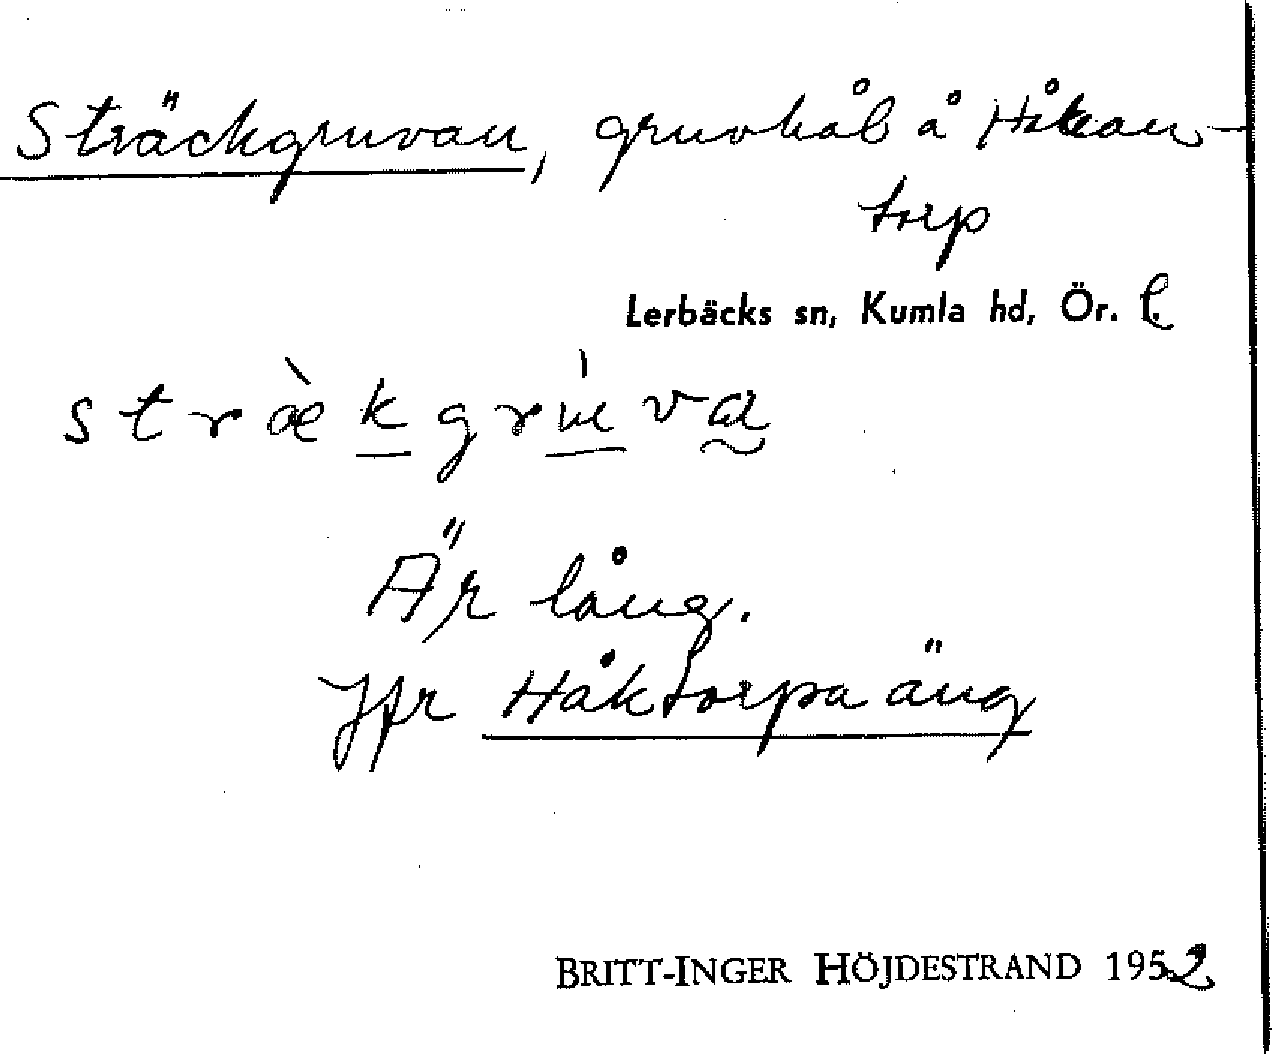 Sträckgruvan, gruvhål å Håkan-
torp
Lerbäcks sn, Kumla hd, Ör. l.
stræ̀kgrùva
Är lång.
Jfr Håktorpa äng
BRITT-INGER HÖJDESTRAND 1952